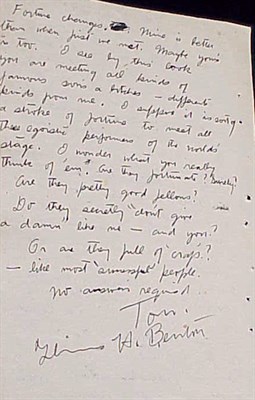 Fortune changes. Mine is better
than when first we met. Maybe yours
is too. I see by this book
you are meeting all kinds of
famous sons a bitches – different
kinds from me. I suppose it is sort of
a stroke of fortune to meet all
the egoistic performers of the worlds'
stage. I wonder what you really
think of 'em. Are they fortunate?
Are they pretty good fellows?
Do they secretly "don't give
a damn" like me – and you?
Or are they full of "crap"?
– like most "successful" people.
No answer required
Tom.
H. Benton